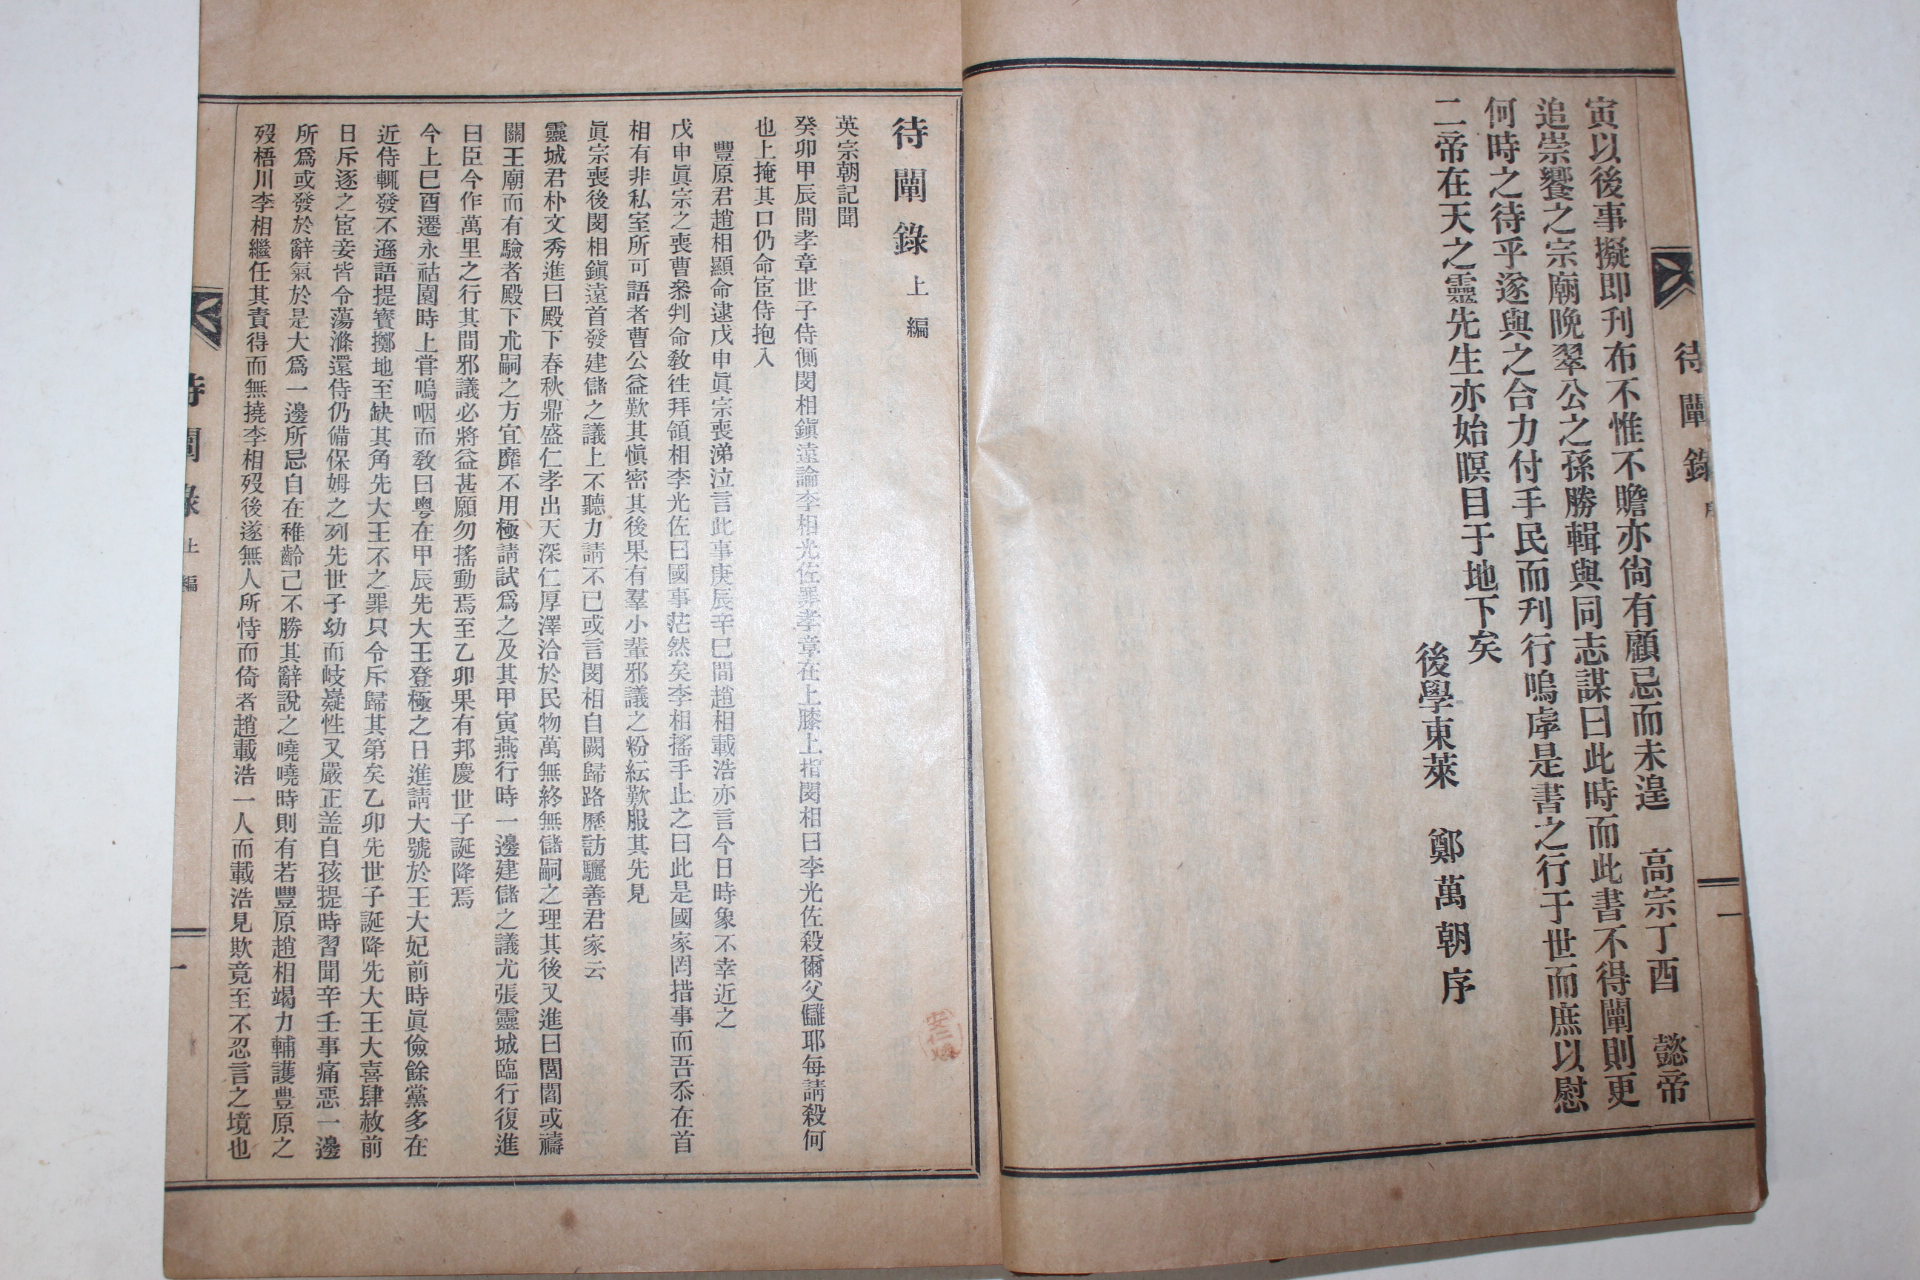 待闡錄
一
寅以後事擬即刊布不惟不贍亦尙有顧忌而未遑 高宗丁酉 懿帝
追崇饗之宗廟晩翠公之孫勝輯與同志謀曰此時而此書不得闡則更
何時之待乎遂與之合力付手民而刋行嗚虖是書之行于世而庶以慰
二帝在天之靈先生亦始瞑目于地下矣
後學東萊 鄭萬朝序
待闡錄 上編
英宗朝記聞
癸卯甲辰間孝章世子侍側閔相鎭遠論李相光佐罪孝章在上膝上指閔相曰李光佐殺爾父讎耶每請殺何
也上掩其口仍命宦侍抱入
豐原君趙相顯命逮戊申眞宗喪涕泣言此事庚辰辛巳間趙相載浩亦言今日時象不幸近之
戊申眞宗之喪曹叅判命敎徃拜領相李光佐曰國事茫然矣李相搖手止之曰此是國家罔措事而吾忝在首
相有非私室所可語者曹公益歎其愼密其後果有羣小輩邪議之粉紜歎服其先見
眞宗喪後閔相鎭遠首發建儲之議上不聽力請不已或言閔相自闕歸路歷訪驪善君家云
靈城君朴文秀進曰殿下春秋鼎盛仁孝出天深仁厚澤洽於民物萬無終無儲嗣之理其後又進曰閭閻或禱
關王廟而有驗者殿下朮嗣之方宜靡不用極請試爲之及其甲寅燕行時一邊建儲之議尤張靈城臨行復進
曰臣今作萬里之行其間邪議必將益甚願勿搖動焉至乙卯果有邦慶世子誕降焉
今上巳酉遷永祐園時上甞嗚咽而敎曰粤在甲辰先大王登極之日進請大號於王大妃前時眞儉餘黨多在
近侍輒發不遜語提寶擲地至缺其角先大王不之罪只令斥歸其第矣乙卯先世子誕降先大王大喜肆赦前
日斥逐之宦妾皆令蕩滌還侍仍備保姆之列先世子幼而岐嶷性又嚴正盖自孩提時習聞辛壬事痛惡一邊
所爲或發於辭氣於是大爲一邊所忌自在稚齡己不勝其辭說之嘵嘵時則有若豐原趙相竭力輔護豊原之
歿梧川李相繼任其責得而無撓李相歿後遂無人所恃而倚者趙載浩一人而載浩見欺竟至不忍言之境也
上編
一